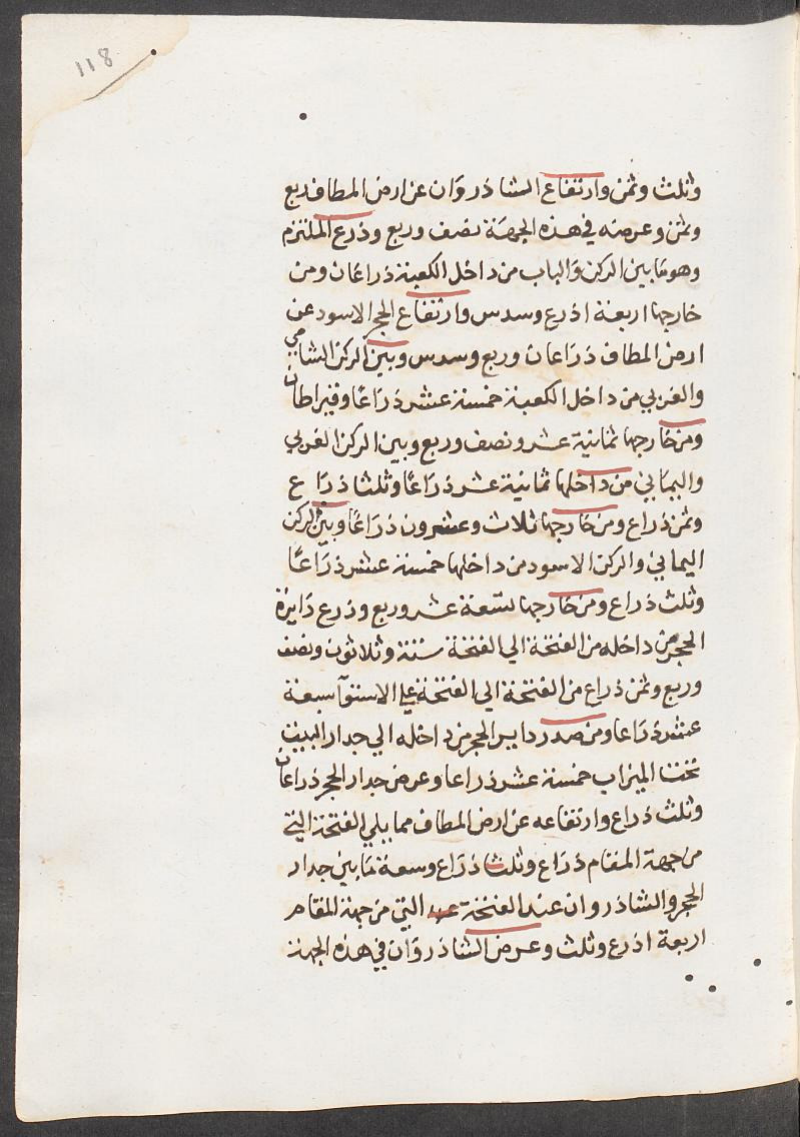 118
وثلث وثمن وارتفاع الشاذروان عن ارض المطاف ربع
وثمن وعرضه في هذه الجهة نصف وربع وذرع الملتزم
وهو ما بين الركن والباب من داخل الكعبة ذراعان ومن
خارجها اربعة اذرع وسدس وارتفاع الحجر الاسود عن
ارض المطاف ذراعان وربع وسدس وبين الركن الشامي
والغربي من داخل الكعبة خمسة عشر ذراعا وقيراطان
ومن خارجها ثمانية عشر ونصف وربع وبين الركن الغربي
واليماني من داخلها ثمانية عشر ذراعا وثلثا ذراع
وثمن ذراع ومن خارجها ثلاث وعشرون ذراعا وبين الركن
اليماني والركن الاسود من داخلها خمسة عشر ذراعا
وثلث ذراع ومن خارجها تسعة عشر وربع وذرع دايرة
الحجر من داخله من الفتحة الي الفتحة ستة وثلاثون ونصف
وربع وثمن ذراع من الفتحة الي الفتحة علي الاستوآ سبعة
عشر ذراعا ومن صدر داير الحجر من داخله الي جدار البيت
تحت الميزاب خمسة عشر ذراعا وعرض جدار الحجر ذراعان
وثلث ذراع وارتفاعه عن ارض المطاف مما يلي الفتحة التي
من جهة المقام ذراع وثلثا ذراع وسعة ما بين جدار
الحجر والشاذروان عند الفتحة التي من جهة المقام
اربعة اذرع وثلث وعرض الشاذروان في هذه الجهة